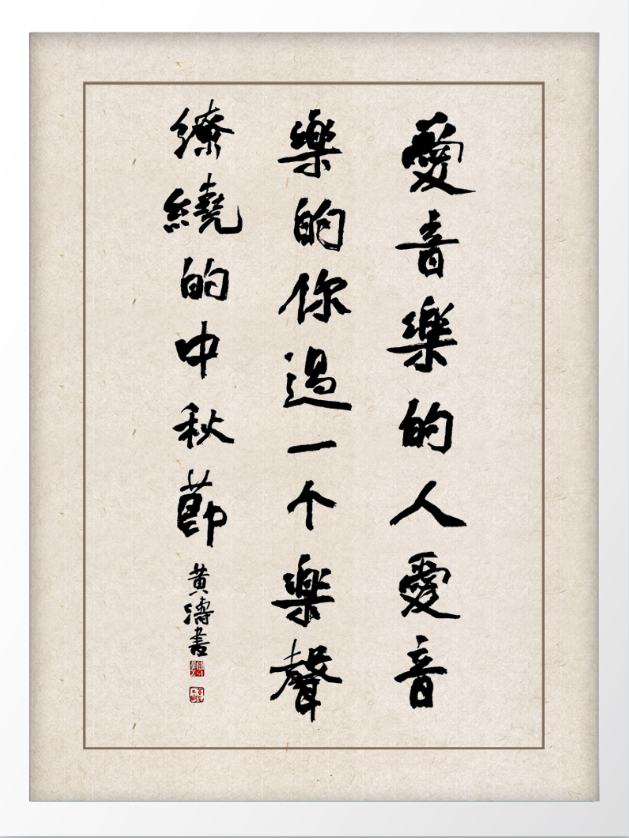 愛音樂的人愛音
樂的你過一个樂聲
繚繞的中秋節
黄濤書